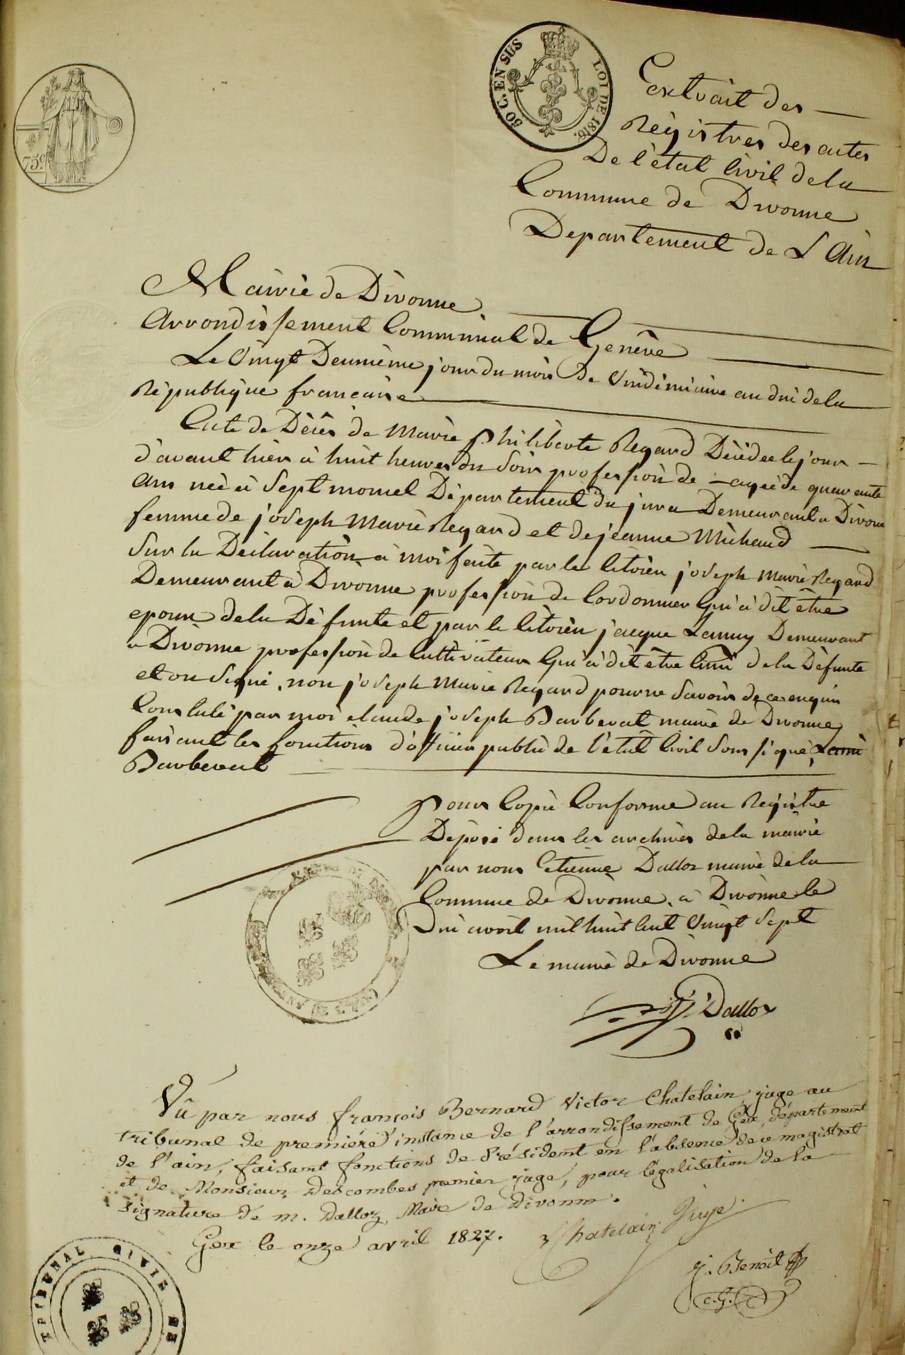 75c
50 C. EN SUS LOI DE 1816.
Extrait des
Régistres des actes
De l'état Civil de la
Commune de Divonne
Departement de L'Ain
Mairie de Divonne
Arrondissement Communal de Genève
Le Vingt Deuxième jour du mois de Vindémiaire an dix de la
République française
Acte de Décès de Marie philiberte Regard Décédée le jour
d'avant hier à huit heures du Soir profession de agée de quarante
Ans née à Septmoncel Département du jura Demeurant a Divonne
femme de joseph Marie Regard et de jeanne Michaud
Sur la Déclaration à moi faite par le Citoien joseph Marie Regard
Demeurant à Divonne profession de Cordonnier Qui a dit être
epoux de la Défunte et par le Citoien jacque Demeurant
a Divonne profession de Cultivateur Qui a dit être de la Défunte
et on Signé, non joseph Marie Regard pour ne Savoir de ce enquis
Constaté par moi claude joseph Barberat maire de Divonne
faisant les fonctions d'officier public de l'état Civil Sous signé,
Barberat
Pour Copie Conforme au Registre
Déposé dans les archives de la mairie
par nous Etienne Dalloz maire de la
Commune de Divonne, à Divonne le
Dix avril mil huit cent Vingt Sept
Le maire de Divonne
Dalloz
Vû par nous françois Bernard Victor Chatelain, juge au
tribunal de première instance de l'arrondissement de Gex, département
de l'ain, faisant fonctions de Président en l'absence de ce magistrat
et de Monsieur Descombes premier juge, pour légalisation de la
signature de m. Dalloz, Maire de Divonne.
Gex le onze avril 1827.
Chatelain Juge
J. Benoit
TRIBUNAL CIVIL DE